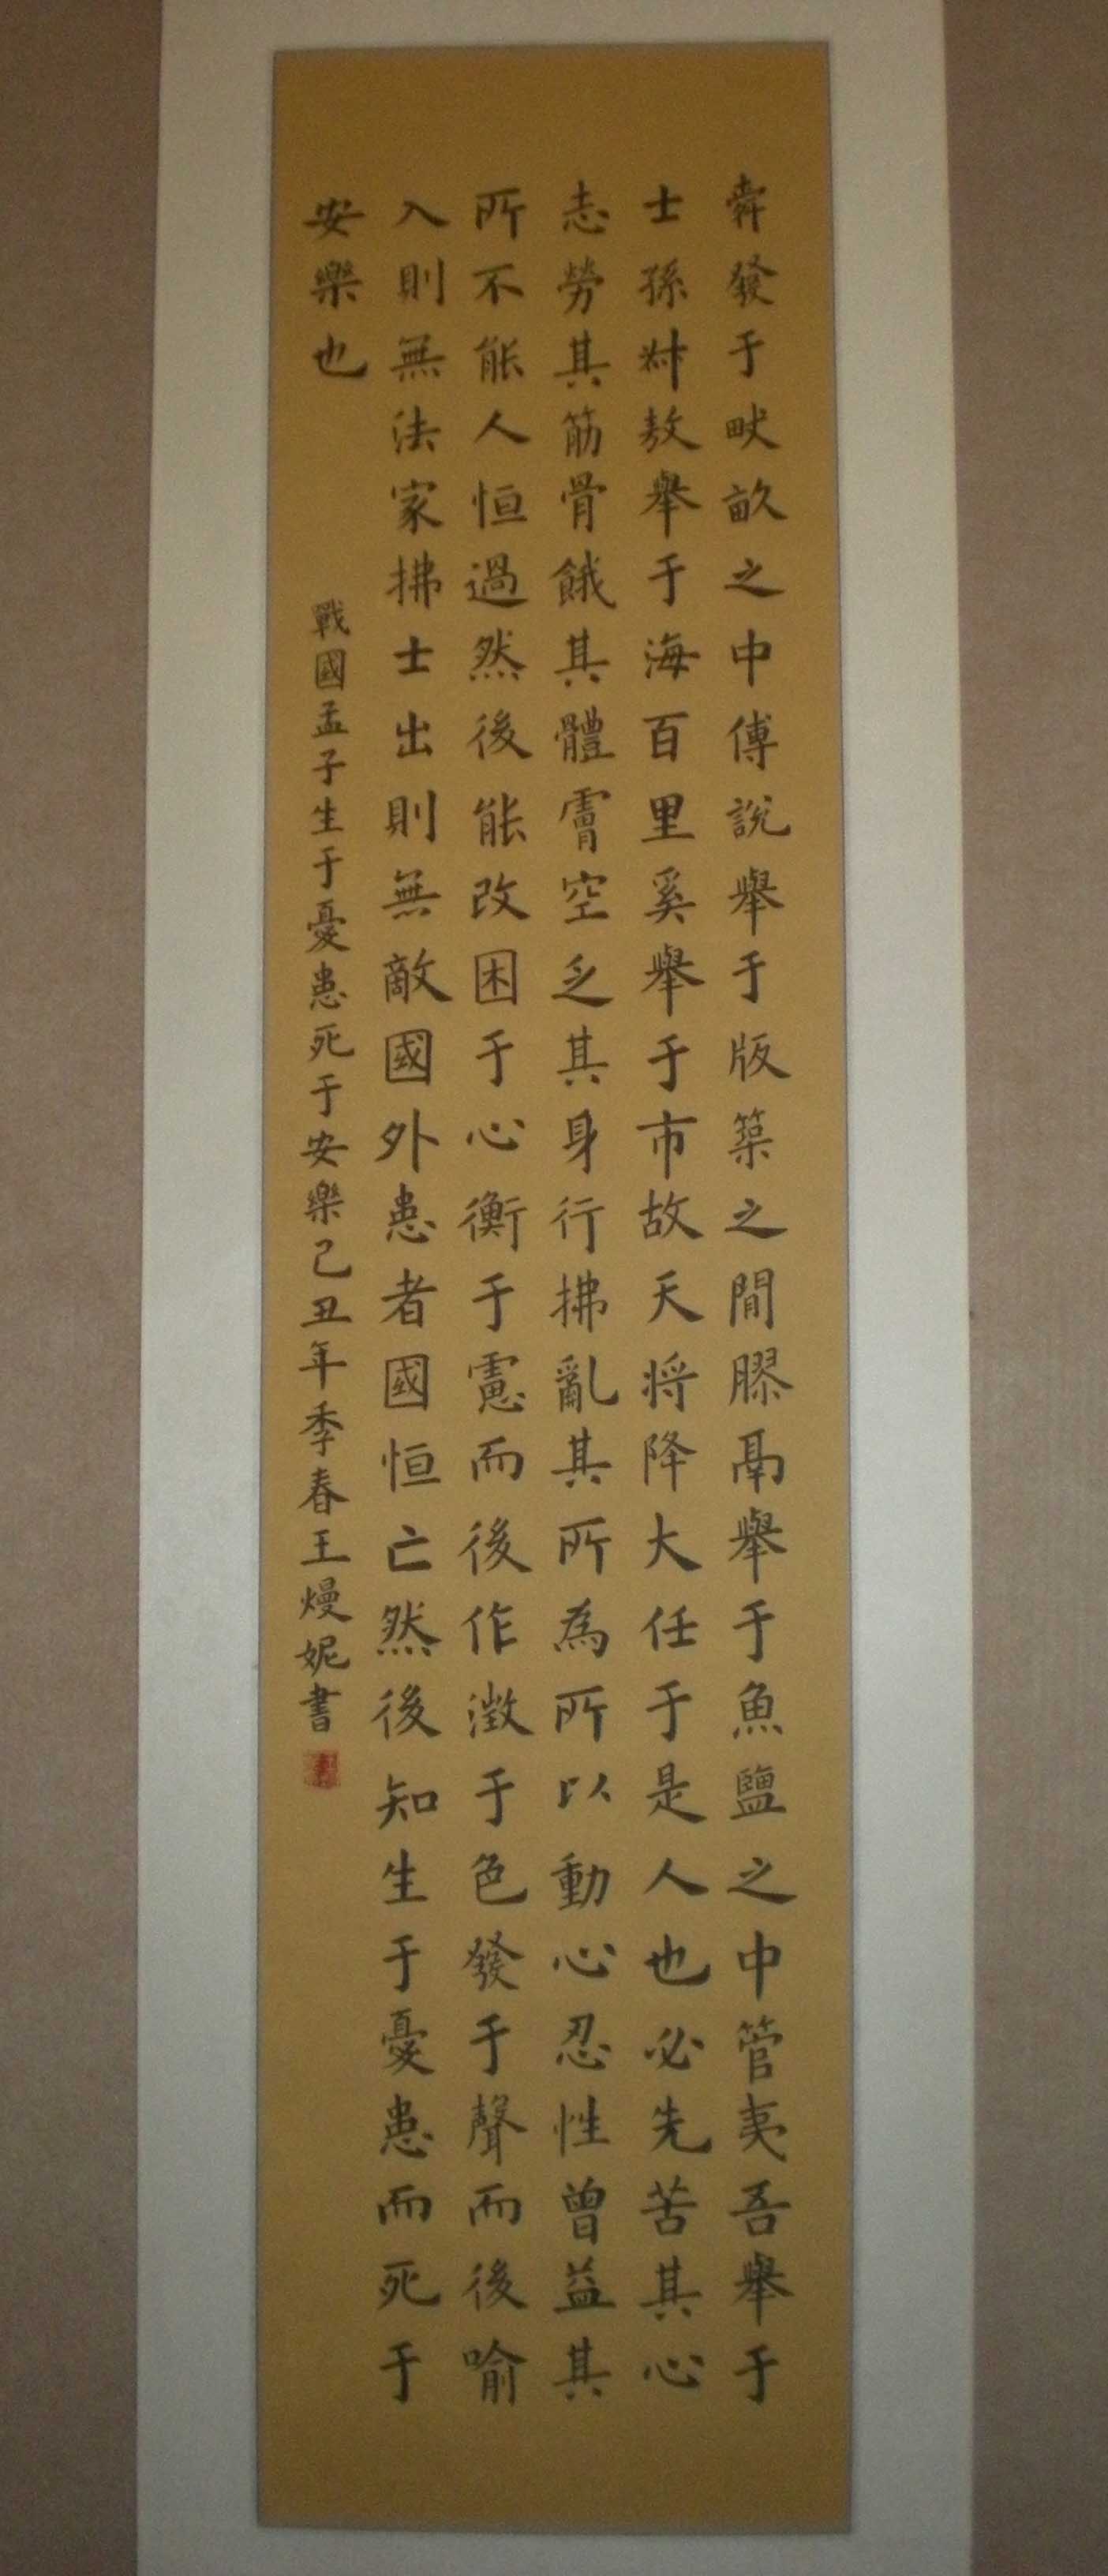 舜發于畎畝之中傅說舉于版築之間膠鬲舉于魚鹽之中管夷吾舉于
士孫叔敖舉于海百里奚舉于市故天將降大任于是人也必先苦其心
志勞其筋骨餓其體膚空乏其身行拂亂其所為所以動心忍性曾益其
所不能人恒過然後能改困于心衡于慮而後作徵于色發于聲而後喻
入則無法家拂士出則無敵國外患者國恒亡然後知生于憂患而死于
安樂也
戰國孟子生于憂患死于安樂己丑年季春王熳妮書